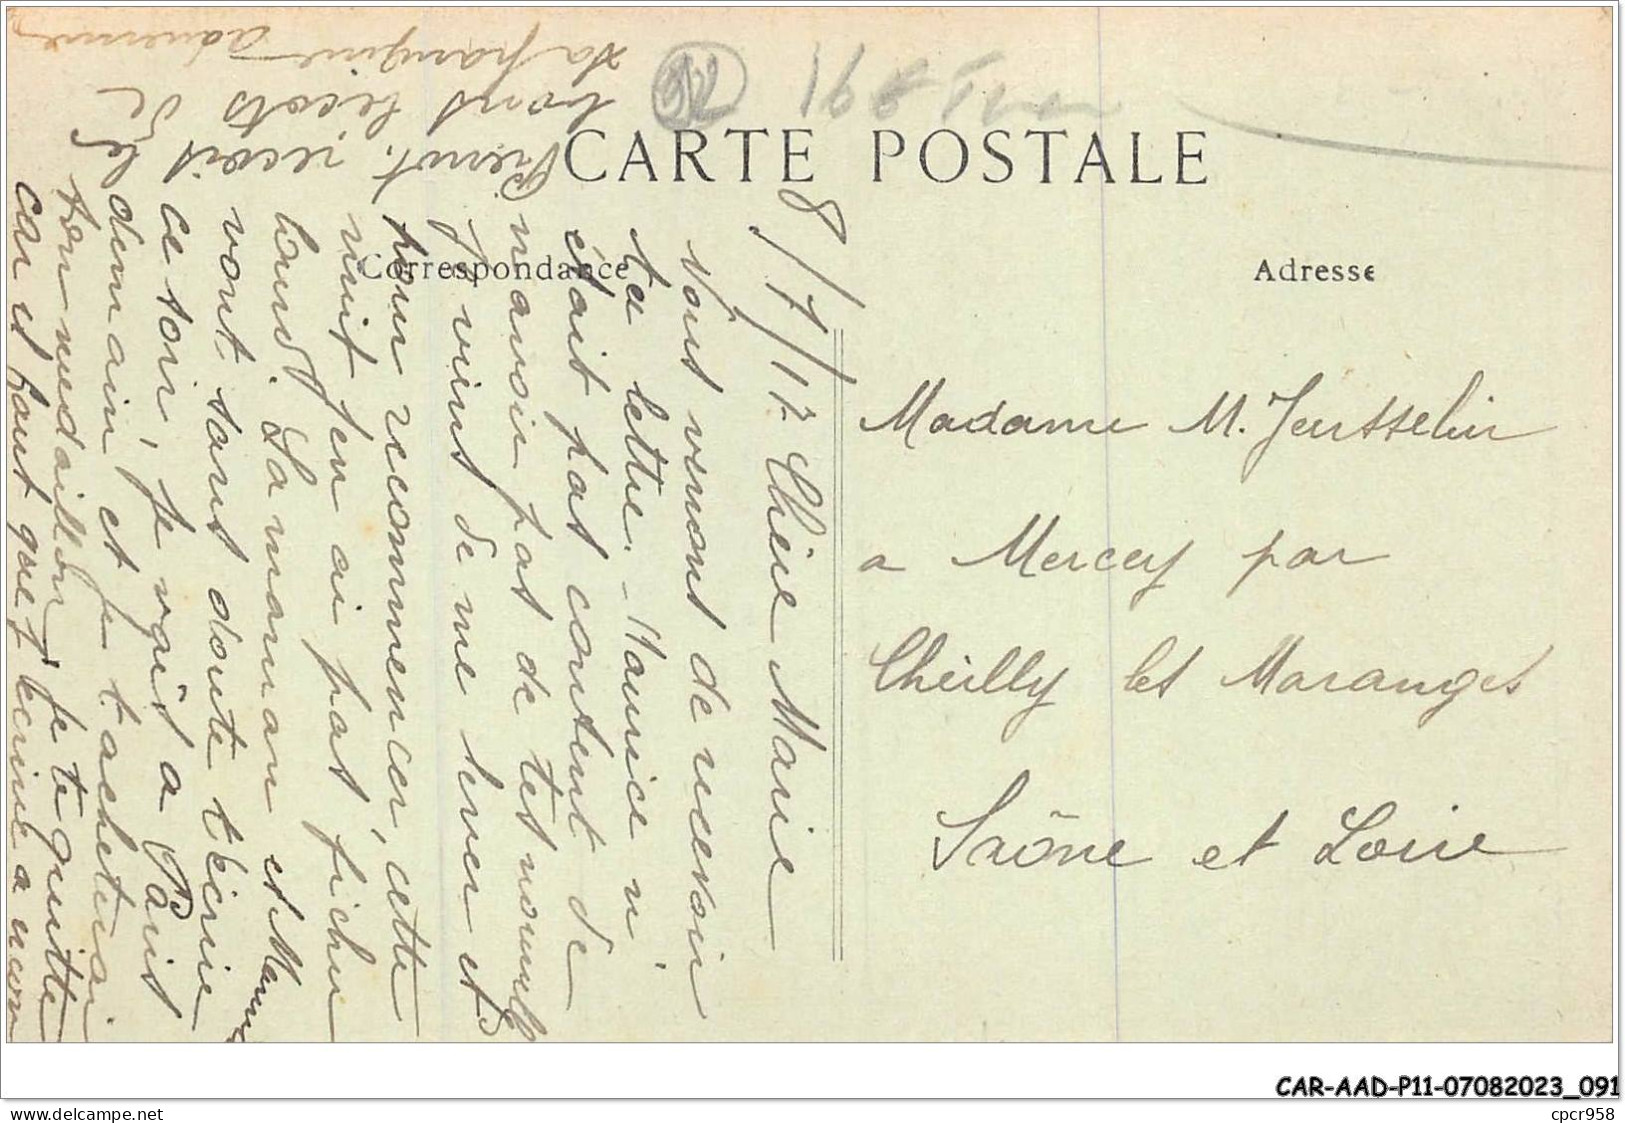 CARTE POSTALE
Correspondance
Adresse
8/7/12 Chère Marie
Nous venons de recevoir
ta lettre. Maurice n'
était pas content de
n'avoir pas de tes nouvelles
Je viens de me lever et
pour recommencer, cette
nuit j'en ai pas fichu
lourd. La maman et Mam
vont sans doute t'écrire
ce soir, je vais a Paris
demain et je t'acheterai
ton medaillon, je te quitte
car il faut que j'ecrive a mon
Pierrot. reçois les
bons bécots de
ta frangine
Madame M. Jeusselin
a Mercey par
Cheilly les Maranges
Saône et Loire
CAR-AAD-P11-07082023_091
cpcr958